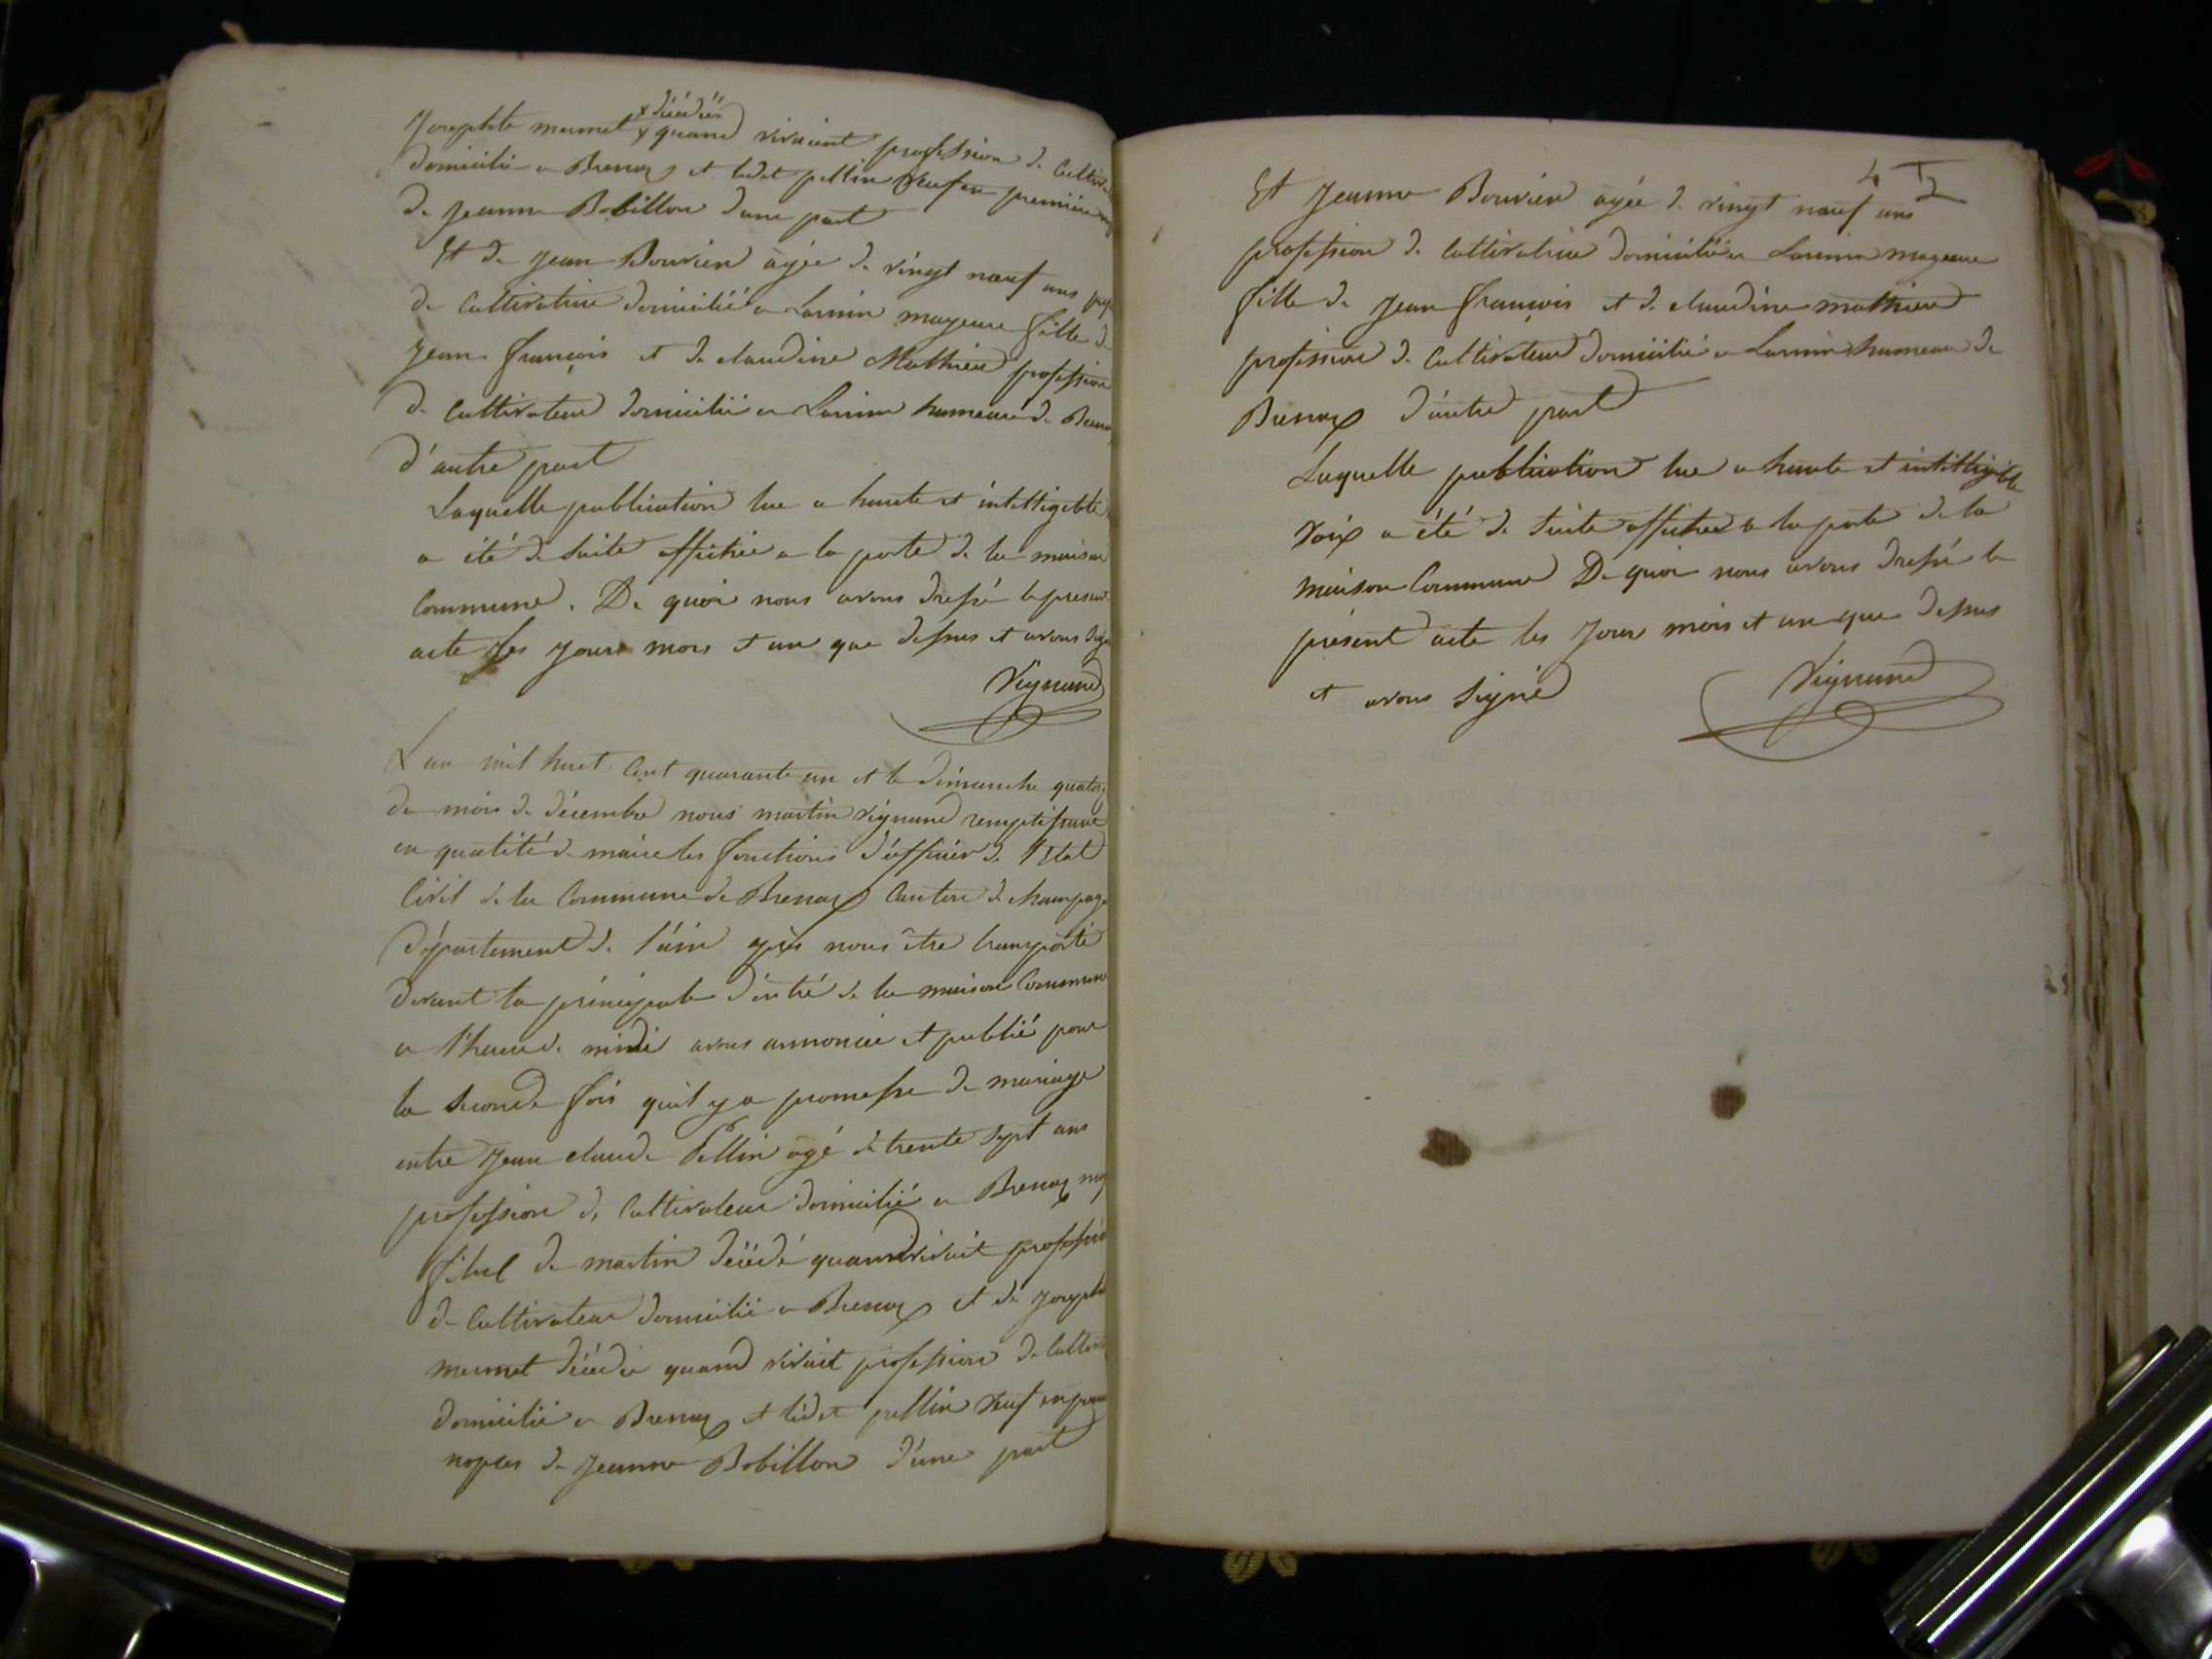 Josephte mermet x quand vivaient profession de Cultiva
x décédée
domicilié a Brenaz et ledit pellin veuf en premiere
de jeanne Bobillon dune part
Et de jean Bouvier agée de vingt nœuf ans prof
de Cultivatrice domicilié a Lavnin mageure fille de
jean françois et de claudine Mathieu profession
de Cultivateur domicilié a Lavnin hameau de Brenaz
d'autre part
Laquelle publication lue a haute et intelligible
a été de suite affichée a la porte de la maison
Commune. De quoi nous avons dressé le present
acte les jours mois et an que dessus et avons sign
Vignand
L'an mil huit Cent quarante un et le dimanche quatorz
du mois de décembre nous martin vignand remplissant
en qualité de maire les fonctions d'officier de l'Etat
Civil de la Commune de Brenaz Canton de champag
Département de l'ain après nous être transporté
devant la principale d'entré de la maison Commune
a l'heure de midi avons annoncée et publié pour
la seconde fois quil y a promesse de mariage
entre jean claude Pellin agé de trente sept ans
profession de Cultivateur domicilié a Brenaz maj
fils de martin décédé quand vivait profession
de Cultivateur domicilié a Brenaz et de joseph
mermet décédée quand vivait profession de Cultiv
domicilié a Brenaz et ledit pellin veuf en prem
nopces de jeanne Bobillon d'une part
4
Et jeanne Bouvier agée de vingt nœuf ans
profession de Cultivatrice domiciliée a Lavnin mageure
fille de jean françois et de claudine mathieu
profession de Cultivateur domicilié a Lavnin hameau de
Brenaz d'autre part
Laquelle publication lue a haute et intelligible
voix a été de suite affichée a la porte de la
maison Commune De quoi nous avons dressé le
présent acte les jour mois et an que dessus
et avons signé
Vignand